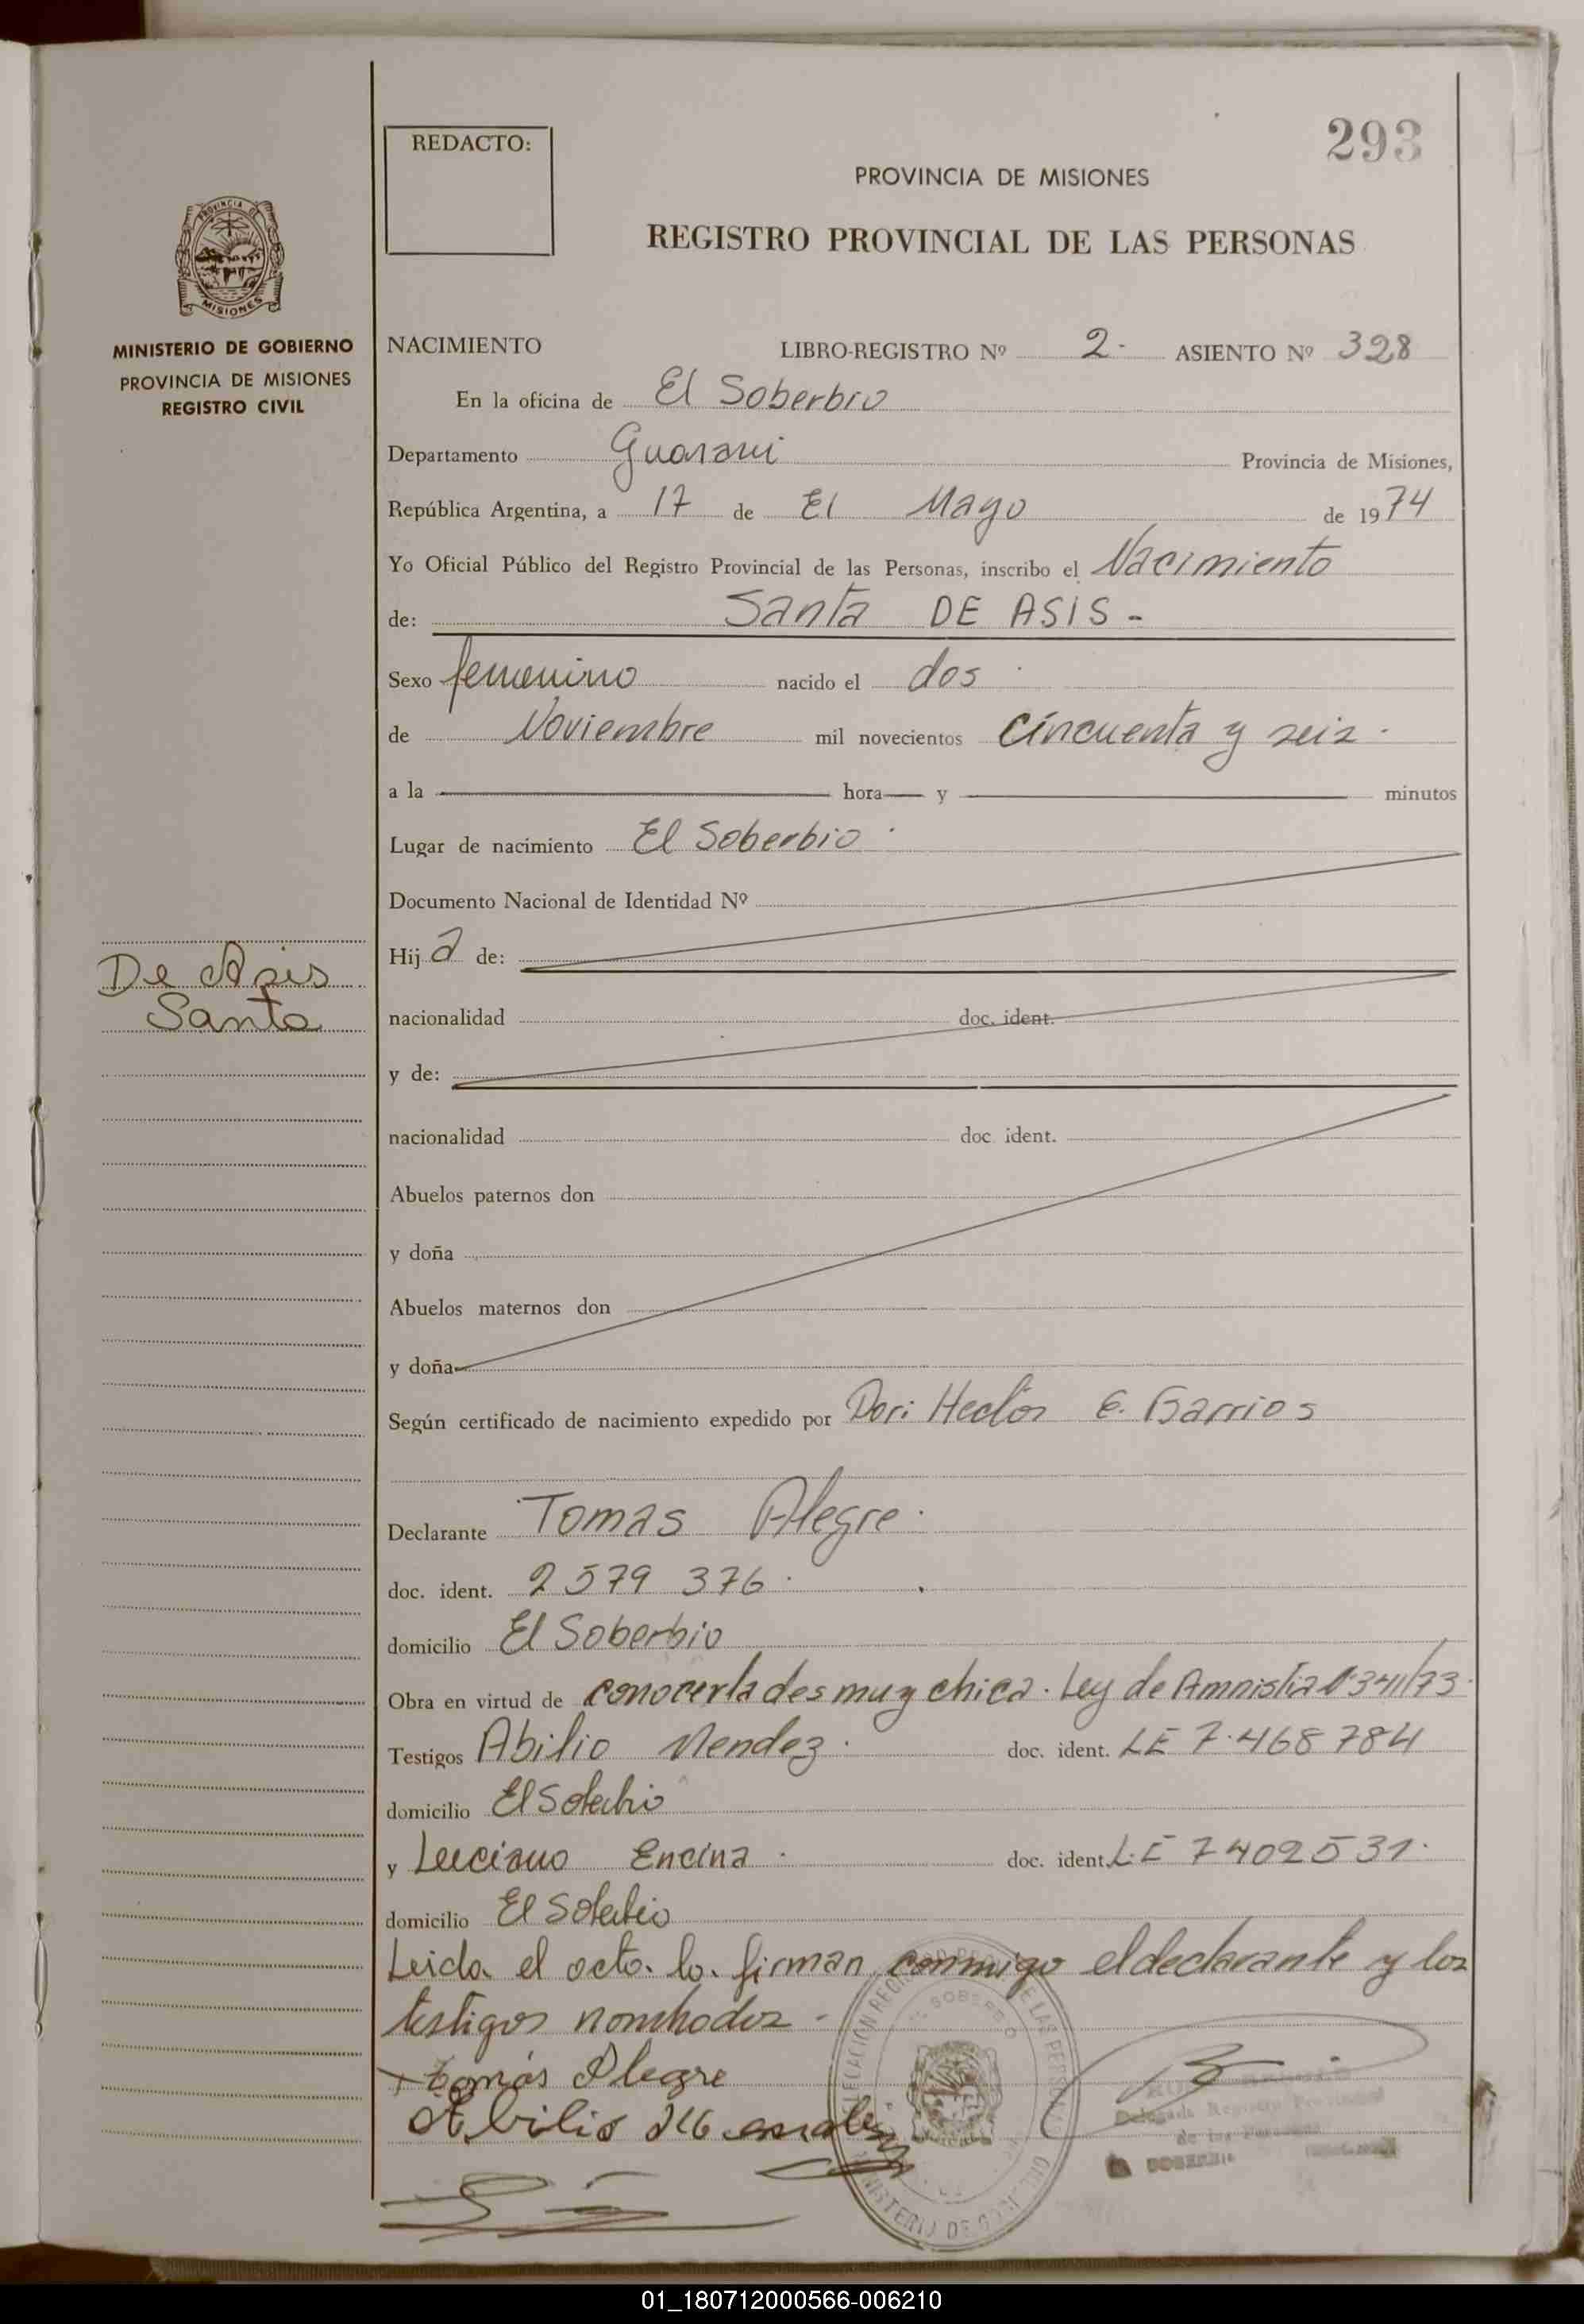 293
REDACTO:
PROVINCIA DE MISIONES
REGISTRO PROVINCIAL DE LAS PERSONAS
PROVINCIA DE
MISIONES
MINISTERIO DE GOBIERNO
PROVINCIA DE MISIONES
REGISTRO CIVIL
NACIMIENTO LIBRO-REGISTRO Nº 2- ASIENTO Nº 328
En la oficina de El Soberbio
Departamento Guarani Provincia de Misiones,
República Argentina, a 17 de El Mayo de 1974
Yo Oficial Público del Registro Provincial de las Personas, inscribo el Nacimiento
de: Santa DE ASIS -
Sexo femenino nacido el dos
de Noviembre mil novecientos cincuenta y seis.
a la hora y minutos
Lugar de nacimiento El Soberbio
Documento Nacional de Identidad Nº
Hija de:
De Asis
Santa
nacionalidad doc. ident.
y de:
nacionalidad doc. ident.
Abuelos paternos don
y doña
Abuelos maternos don
y doña
Según certificado de nacimiento expedido por Hector E. Barrios
Declarante Tomas Alegre.
doc. ident. 2579 376.
domicilio El Soberbio
Obra en virtud de conocerla des muy chica. Ley de Amnistia
Testigos Abilio Mendez. doc. ident. LE 7.468 784
domicilio El Soberbio
y Luciano Encina. doc. ident. L.E 7402531.
domicilio El Soberbio
Leida el acto. lo. firman conmigo el declarante y los
testigos nombrados -
Tomás Alegre
Abilio Mendez
Delegada Registro Provincial
de las Personas
SOBERBIO
01_180712000566-006210